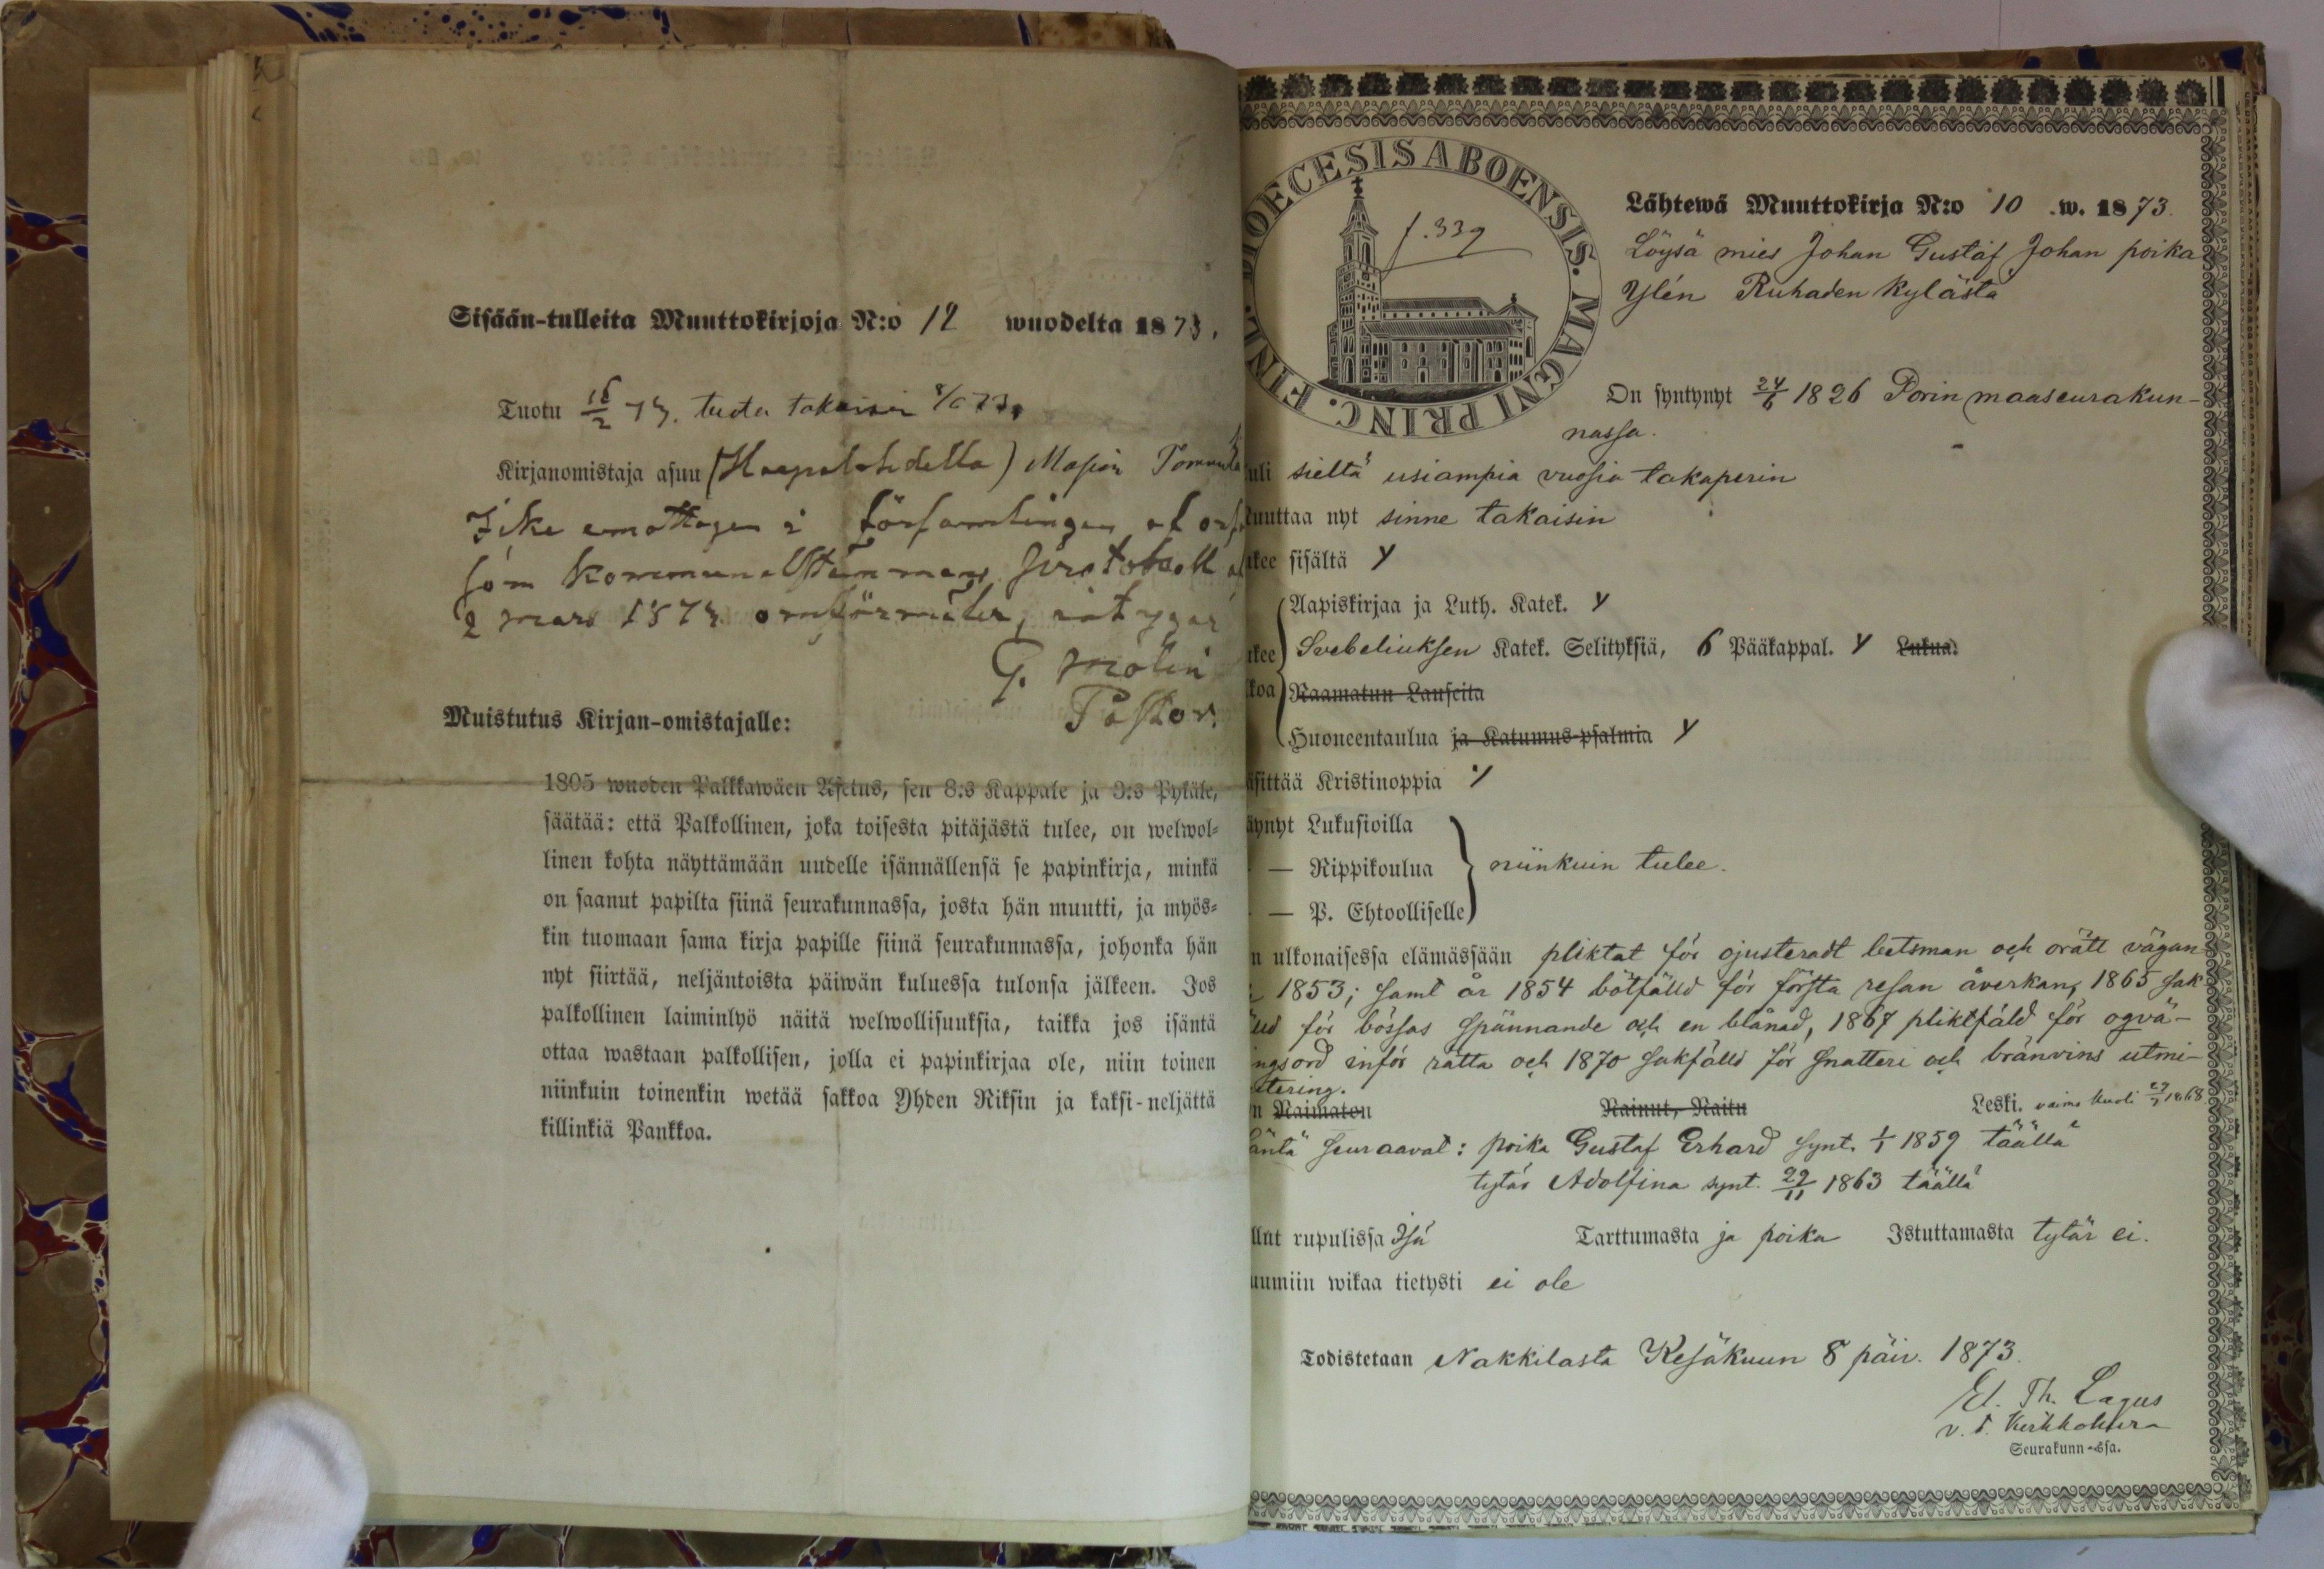 Sisään-tulleita Muuttokirjoja N:o 12 wuodelta 1873.
Tuotu 16/2 73. tuotu takaisin
Kirjanomistaja asuu (Haapalahdella)
Icke emottagen i församlingen af
som Kommunalstämmans
2 mars 1873 omförmäler, intygar
G. Molin
Pastor.
Muistutus Kirjan-omistajalle:
1805 wuoden Palkkawäen Asetus, sen 8:s Kappale ja 3:s Pykäle,
säätää: että Palkollinen, joka toisesta pitäjästä tulee, on welwol-
linen kohta näyttämään uudelle isännällensä se papinkirja, minkä
on saanut papilta siinä seurakunnassa, josta hän muutti, ja myös-
kin tuomaan sama kirja papille siinä seurakunnassa, johonka hän
nyt siirtää, neljäntoista päiwän kuluessa tulonsa jälkeen. Jos
palkollinen laiminlyö näitä welwollisuuksia, taikka jos isäntä
ottaa wastaan palkollisen, jolla ei papinkirjaa ole, niin toinen
niinkuin toinenkin wetää sakkoa Yhden Riksin ja kaksi-neljättä
killinkiä Pankkoa.
DIOECESIS ABOENSIS. MAGNI PRINC. FINL.
f. 339
Lähtewä Muuttokirja N:o 10 w. 1873.
Löysä mies Johan Gustaf Johan poika
Ylén Ruhaden kylästä
On syntynyt 24/6 1826 Porin maaseurakun-
nassa.
uli sieltä usiampia vuosia takaperin
uuttaa nyt sinne takaisin
kee sisältä y
Aapiskirjaa ja Luth. Katek. y
kee Svebeliuksen Katek. Selityksiä, 6 Pääkappal. y Lukua.
koa Raamatun Lauseita
Huoneentaulua ja Katumus-psalmia y
äsittää Kristinoppia y
äynyt Lukusioilla
— Rippikoulua niinkuin tulee.
— P. Ehtoolliselle
n ulkonaisessa elämässään pliktat för ojusteradt betsman och orätt vägan-
1853; samt år 1854 bötfälld för första resan åverkan, 1865 sak-
för bössas spännande och en blånad, 1867 pliktfäld för oqvä-
ngsord inför rätta och 1870 sakfälld för snatteri och bränvins utmi-
tering.
n Naimaton Nainut, Naitu Leski. vaimo kuoli 1868.
äntä seuraavat: poika Gustaf Erhard synt. 1/1 1859 täällä
tytär Adolfina synt. 29/11 1863 täällä
llut rupulissa Isä Tarttumasta ja poika Istuttamasta tytär ei.
uumiin wikaa tietysti ei ole
Todistetaan Nakkilasta Kesäkuun 8 päiv. 1873.
El. Th. Lagus
v. t. Kirkkoherra
Seurakunn-ssa.